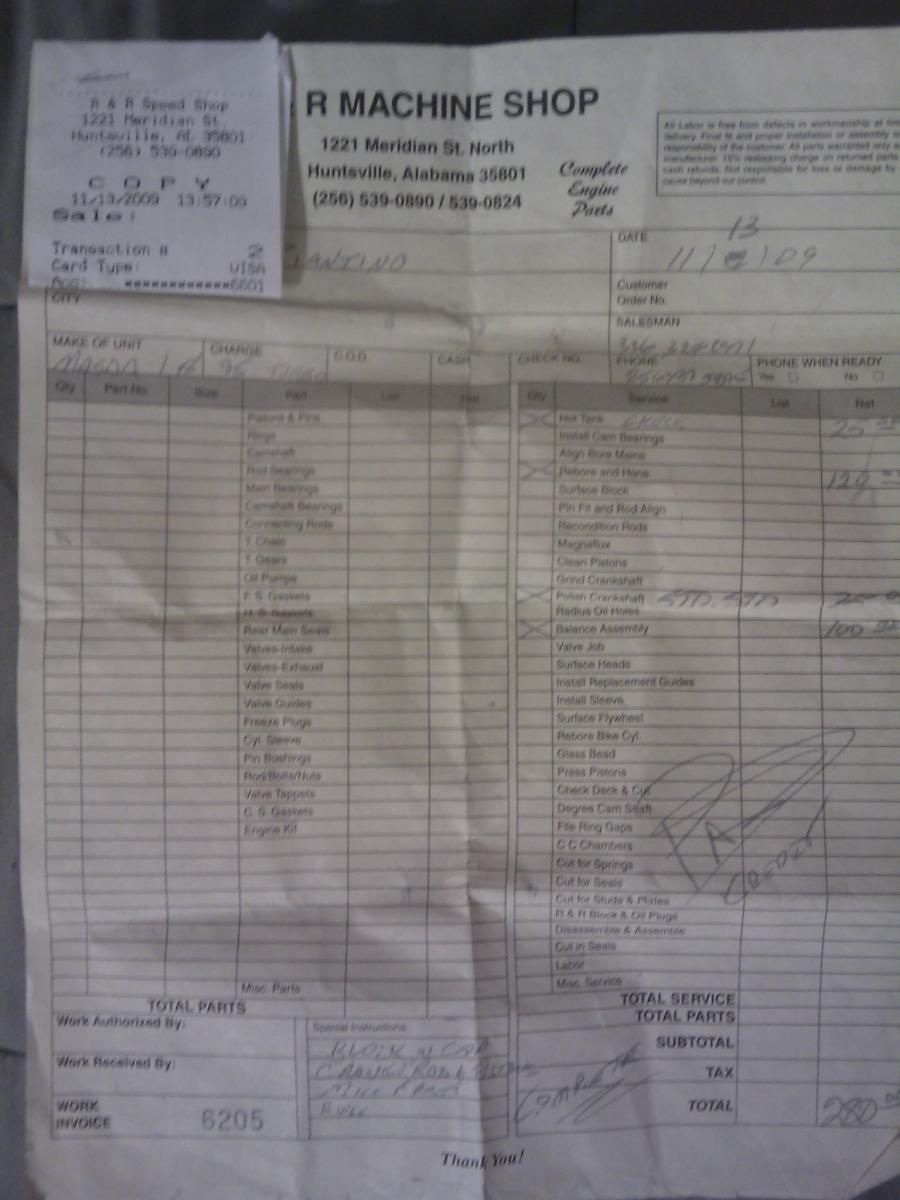 R & R Speed Shop
1221 Meridian St.
Huntsville, AL 35801
(256) 539-0890
COPY
11/13/2009 13:57:09
Sale:
Transaction # 2
Card Type: VISA
Acc: ************6601
R MACHINE SHOP
1221 Meridian St. North
Huntsville, Alabama 35801
(256) 539-0890 / 539-0824
Complete
Engine
Parts
All Labor is free from defects in workmanship at
delivery. Final fit and proper installation or assembly
responsibility of the customer. All parts warranted only
manufacturer. 15% restocking charge on returned parts
cash refunds. Not responsible for loss or damage by
cause beyond our control.
DATE 13
11/ /09
Customer
Order No.
CITY
SALESMAN
MAKE OF UNIT CHARGE C.O.D. CASH CHECK NO. PHONE PHONE WHEN READY
Yes No
Qty Part No. Size Part List Net
Pistons & Pins
Rings
Camshaft
Rod Bearings
Main Bearings
Camshaft Bearings
Connecting Rods
T. Chain
T. Gears
Oil Pumps
F. S. Gaskets
Rear Main Seals
Valves-Intake
Valves-Exhaust
Valve Seals
Valve Guides
Freeze Plugs
Cyl. Sleeve
Pin Bushings
Rod/Bolts/Nuts
Valve Tappets
C. S. Gaskets
Engine Kit
Misc. Parts
TOTAL PARTS
Qty Service List Net
X Hot Tank 25
Install Cam Bearings
Align Bore Mains
X Rebore and Hone 120
Surface Block
Pin Fit and Rod Align
Recondition Rods
Magnaflux
Clean Pistons
Grind Crankshaft
X Polish Crankshaft STD. STD
Radius Oil Holes
X Balance Assembly 100
Valve Job
Surface Heads
Install Replacement Guides
Install Sleeve
Surface Flywheel
Rebore Bike Cyl.
Glass Bead
Press Pistons
Check Deck & Cut
Degree Cam Shaft
File Ring Gaps
C C Chambers
Cut for Springs
Cut for Seals
Cut for Studs & Plates
R & R Block & Oil Plugs
Disassemble & Assemble
Cut in Seals
Labor
Misc. Service
CREDIT
TOTAL SERVICE
TOTAL PARTS
SUBTOTAL
TAX
TOTAL 280
COMPLETE
Work Authorized By:
Work Received By:
WORK
INVOICE 6205
Special Instructions:
BLOCK
Thank You!